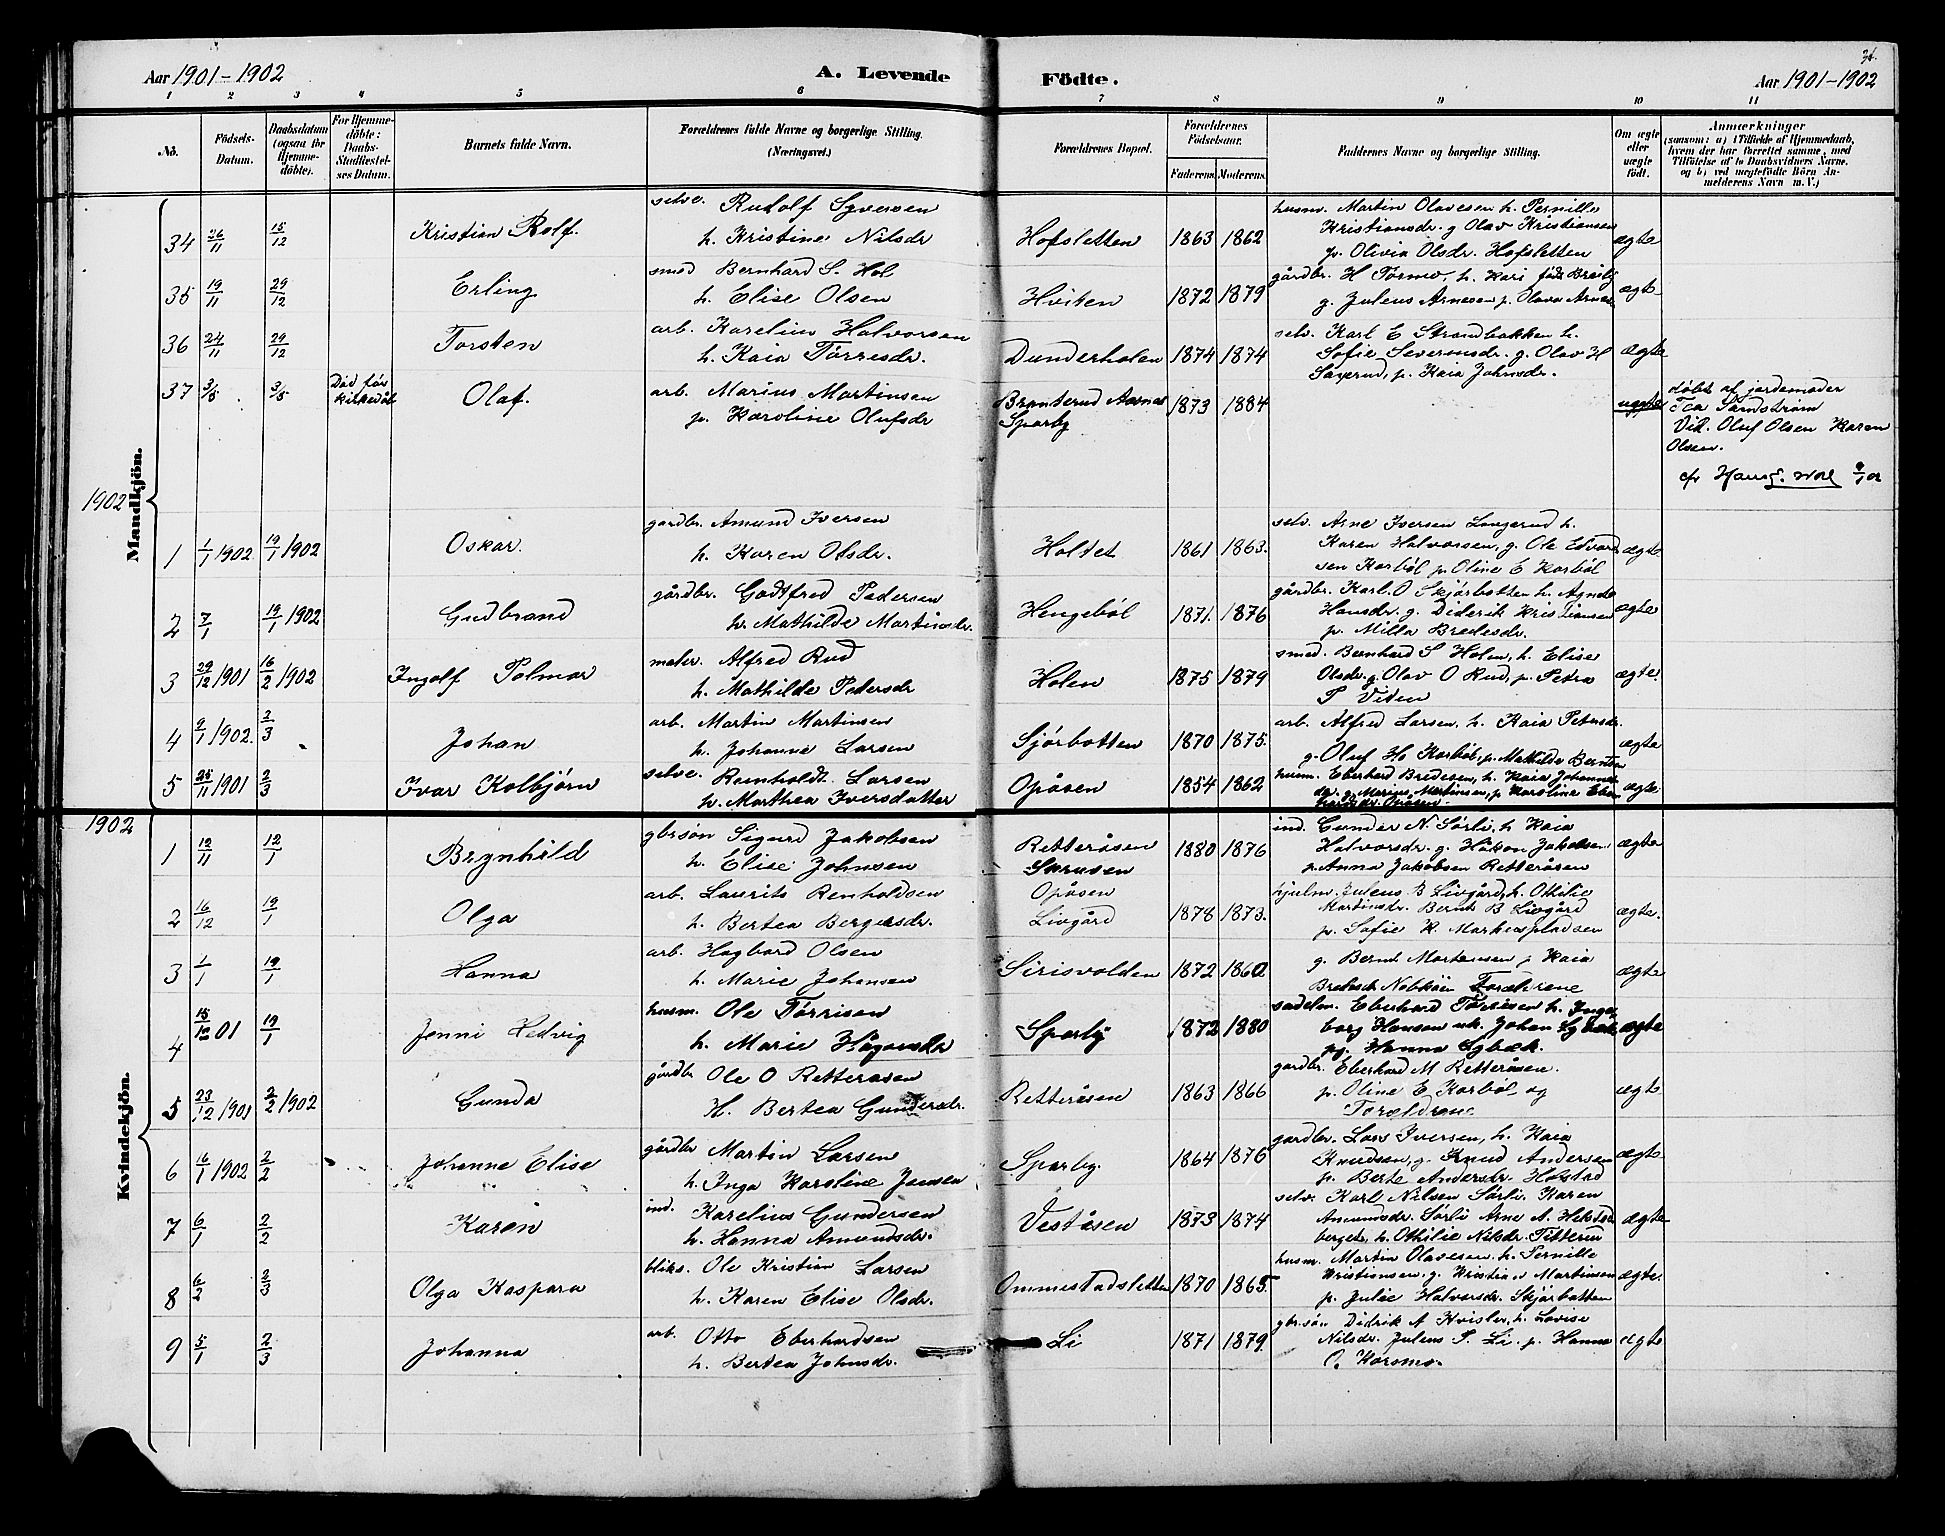 Aar 1901-1902
A. Levende Födte.
36.
Aar 1901-1902
1 2 3 4 5 6 7 8 9 10 11
No.
Födsels-Datum.
Daabsdatum (ogsaa för Hjemme-döbte).
For Hjemme-döbte: Daabs-Stadfæstel-ses Datum.
Barnets fulde Navn.
Forældrenes fulde Navne og borgerlige Stilling. (Næringsvei.)
Forældrenes Bopæl.
Forældrenes Födselsaar.
Faderens. Moderens.
Faddernes Navne og borgerlige Stilling.
Om ægte eller uægte födt.
Anmærkninger
(saasom: a) i Tilfælde af Hjemmedaab, hvem der har forrettet samme, med Tilföielse af to Daabsvidners Navne, og b) ved uægtefödte Börn An-melderens Navn m. V.)
Mandkjön.
34 26/11 15/12 Kristian Rolf.
selve. Rudolf Syversen
h. Kristine Nilsdr
Hofsletten 1863 1862
husm. Martin Olavesen h. Pernille
Kristiansdr. g Olav Kristiansen
p. Olivia Olsdr. Hofsletten
ægte
35 19/11 29/12 Erling
smed Bernhard S. Hol
h. Elise Olsen
Hviten 1872 1879
gårdbr. H Tørmo, h. Kari
g. Julius Arnesen p. Olava Arnes
ægte
36 24/11 29/12 Torsten
arb. Karelius Halvorsen
h. Kaia Tørresdr.
Dunderholen 1874 1874
selv. Karl E Strandbakken h.
Sofie Seversdr. g. Olav H
p. Kaia Johnsdr.
ægte
37 3/5 3/5 Död før kirkedåb Olaf.
arb. Marius Martinsen
p. Karoline Olufsdr
Branterud Aasnes
Sparby
1873 1884
uægte
døbt af jordemoder
Sandström
Vid. Oluf Olsen Karen
Olsen.
1902
1 1/1 1902 19/1 1902 Oskar.
gårdbr. Amund Iversen
h. Karen Olsdr.
Holtet 1861 1863.
selv. Arne Iversen Langerud h.
Karen Halvorsen, g. Ole Edvard
sen Karbøl p. Oline E Karbøl
ægte
2 7/1 19/1 1902 Gudbrand
gårdbr. Godtfred Pedersen
h. Mathilde Martinsdr.
Hengebøl 1871. 1876
gårdbr. Karl O Skjørbotten h. Agnde
Hansdr. g. Diderik Kristiansen
p. Milla Bredesdr.
ægte
3 29/12 1901 16/2 1902 Ingolf Palmar
maler. Alfred Rud
h. Mathilde Pedersdr
Holen 1875 1879
smed. Bernhard S Holen, h. Elise
Olsdr. g. Olav O Rud, p. Petra
P Viten
ægte.
4 9/1 1902. 2/3 Johan
arb. Martin Martinsen
h. Johanne Larsen
Sjørbotten 1870 1875.
arb. Alfred Larsen, h. Kaia Petersdr.
g. Oluf H. Karbøl, p. Mathilde Berntsen
ægte
5 25/11 1901 2/3 Ivar Kolbjørn
selve. Reinholdt Larsen
h. Marthea Iversdatter
Opåsen 1854 1862
husm. Eberhard Bredesen, h. Kaia Johannes
dr. g. Marius Martinsen, p Karoline Eber
hardsdr. Opåsen.
ægte
1902
Kvindekjön.
1 12/11 12/1 Brynhild
gbrsøn Sigurd Jakobsen
h. Elise Johnsen
Retteråsen
1880 1876
ind. Gunder N. Sørli, h. Kaia
Halvorsdr. g. Håkon Jakobsen
p. Anna Jakobsen Retteråsen
ægte
2 16/12 19/1 Olga
arb. Laurits Renholdsen
h. Bertea Bergersdr.
Opåsen
Livgård
1878 1873.
hjulm. Julius B Livgård, h. Othilie
Martinsdr. Bernt B Livgård
p. Sofie K. Markusplads
ægte.
3 1/1 19/1 Hanna
arb. Hagbard Olsen
h. Marie Johansen
Sirisvolden 1872 1860
g. Bernt Martinsen p Kaia
Forældrene
ægte
4 15/10 01 19/1 Jenni Hedvig
husm. Ole Tørrisen
h. Marie Hågensdr
Sparby 1872 1880
sadelm. Eberhard Tørrisen h. Inge
borg Hansen uk. Johan Lybæk
pg. Hanna Lybæk.
ægte
5 23/12 1901 2/2 1902 Gunda
gårdbr Ole O Retteråsen
H. Bertea Gundersdr.
Retteråsen 1863 1866
gardbr. Eberhard M Retteråsen.
p. Oline E Karbøl og
Forældrene
ægte
6 16/1 1902 2/2 Johanne Elise
gårdbr Martin Larsen
h. Inga Karoline Jensen
Sparby. 1864 1876
gardbr. Lars Iversen, h. Kaia
Knudsen, g. Knud Andersen
p. Berte Andersdr. Holstad
ægte
7 6/1 2/2 Karen
ind. Karelius Gundersen
h. Hanna Amundsdr.
Veståsen 1873 1874
selv. Karl Nilsen Sørli. Karen
Amundsdr. Sørli Arne A.
berget, h. Othilie Nilsdr.
ægte
8 6/2 2/3 Olga Kaspara
bliks. Ole Kristian Larsen
h. Karen Elise Olsdr.
Ommestadsletten 1870 1865
husm. Martin Olavesen h. Pernille
Kristiansen. g. Kristian Martinsen
p. Julie Halvorsdr. Skjørbotten
ægte.
9 5/1 2/3 Johanna
arb. Otto Eberhardsen
h. Bertea Johnsdr.
Li 1871 1879
gbr.søn Didrik A Kvisler, h. Lovise
Nilsdr. Julius P. Li p. Hanna
O. Karsmo.
ægte